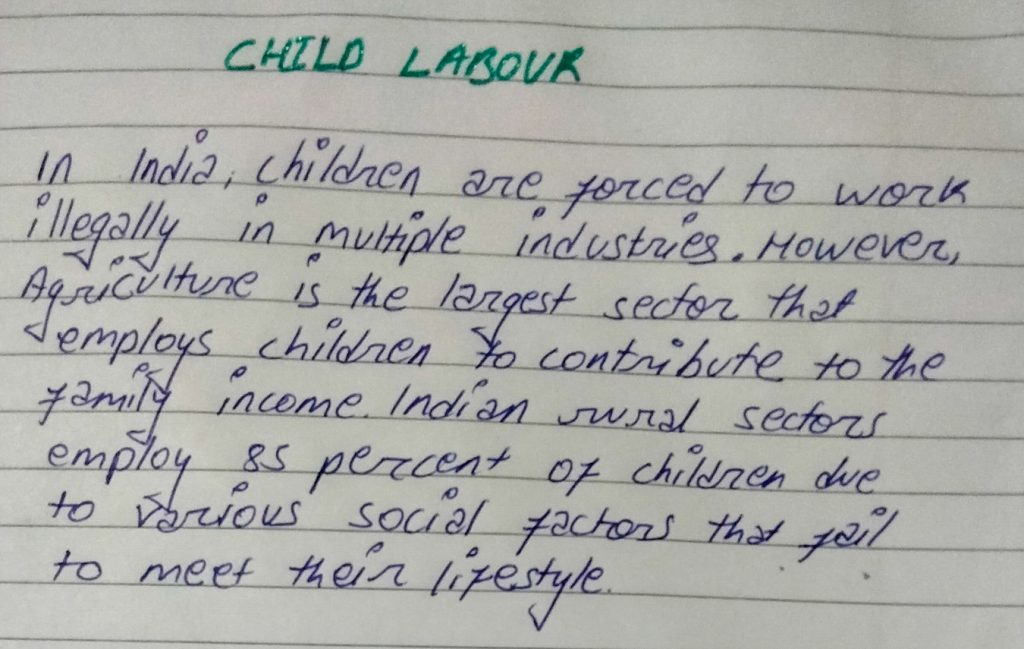 CHILD LABOUR
In India, children are forced to work
illegally in multiple industries. However,
Agriculture is the largest sector that
employs children to contribute to the
family income. Indian rural sectors
employ 85 percent of children due
to various social factors that fail
to meet their lifestyle.